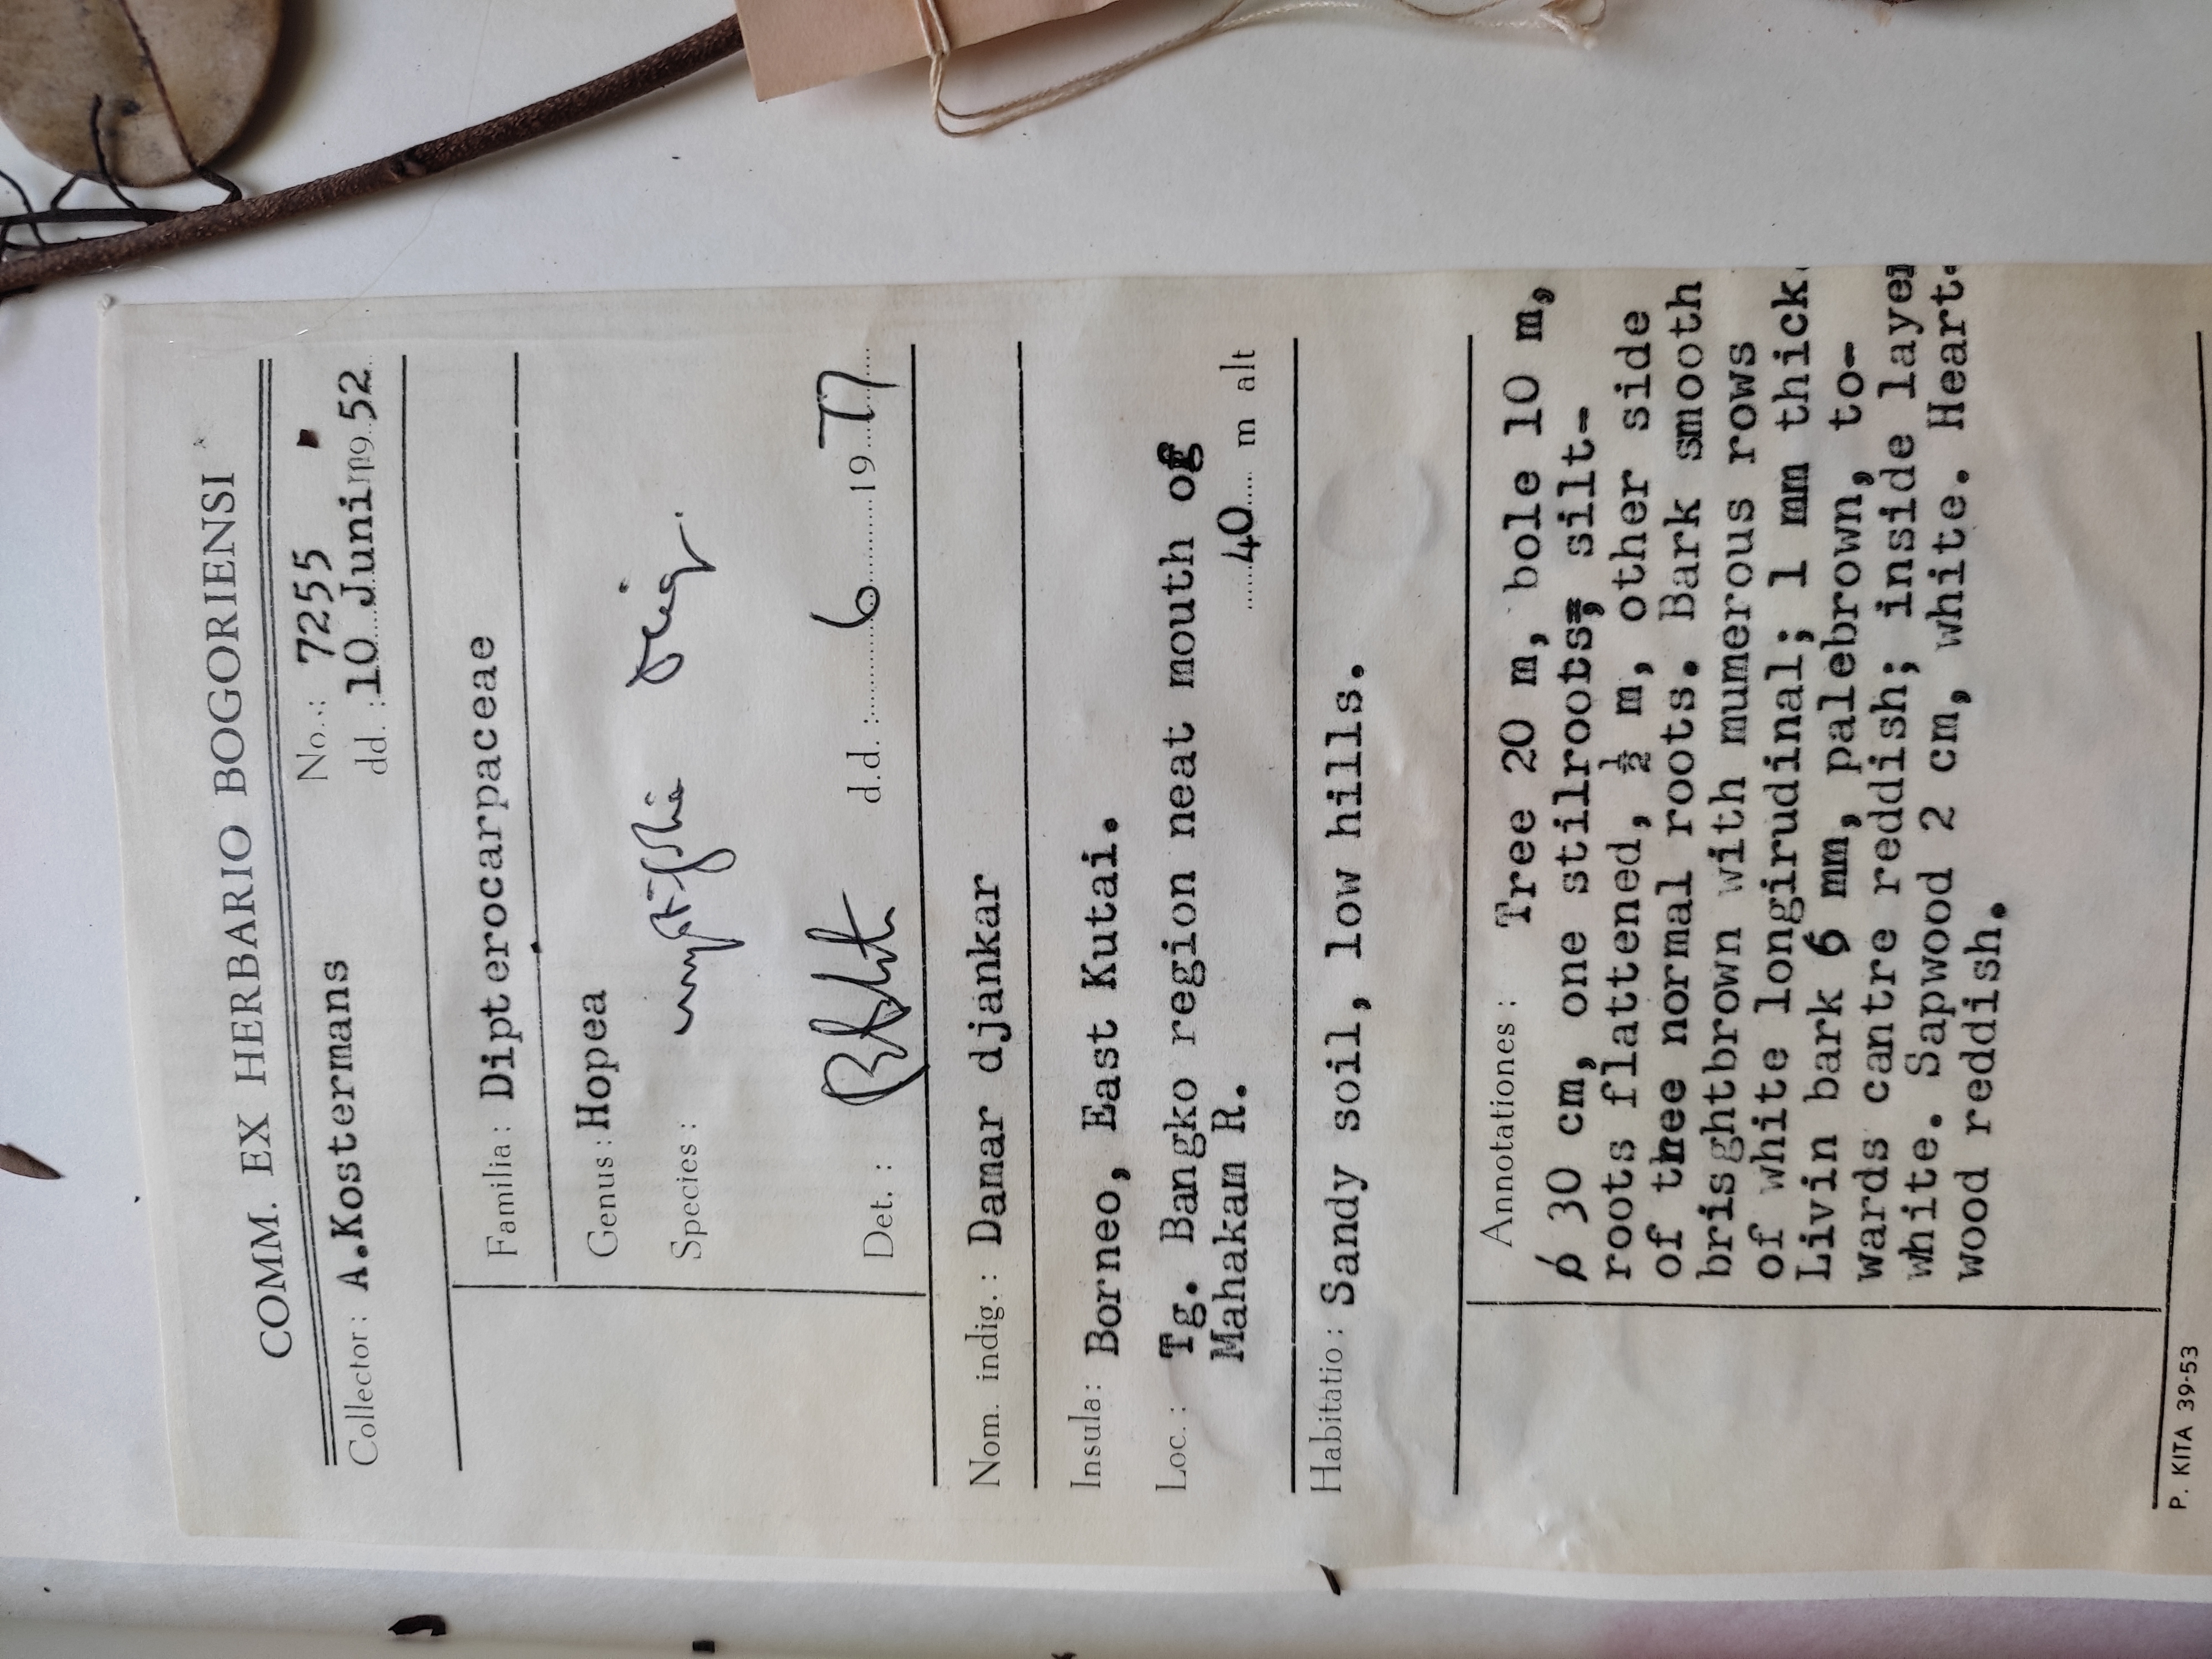 COMM. EX HERBARIO BOGORIENSI
Collector: A.Kostermans No.: 7255
dd.: 10 Juni 1952
Familia: Dipterocarpaceae
Genus: Hopea
Species:
Det.: d.d.: 6 1977
Nom. indig.: Damar djankar
Insula: Borneo, East Kutai.
Loc.: Tg. Bangko region neat mouth of
Mahakam R. 40 m alt
Habitatio: Sandy soil, low hills.
Annotationes: Tree 20 m, bole 10 m,
ø 30 cm, one stilroots, silt-
roots flattened, ½ m, other side
of tree normal roots. Bark smooth
brisghtbrown with mumerous rows
of white longirudinal; 1 mm thick.
Livin bark 6 mm, palebrown, to-
wards cantre reddish; inside layer
white. Sapwood 2 cm, white. Heart-
wood reddish.
P. KITA 39-53